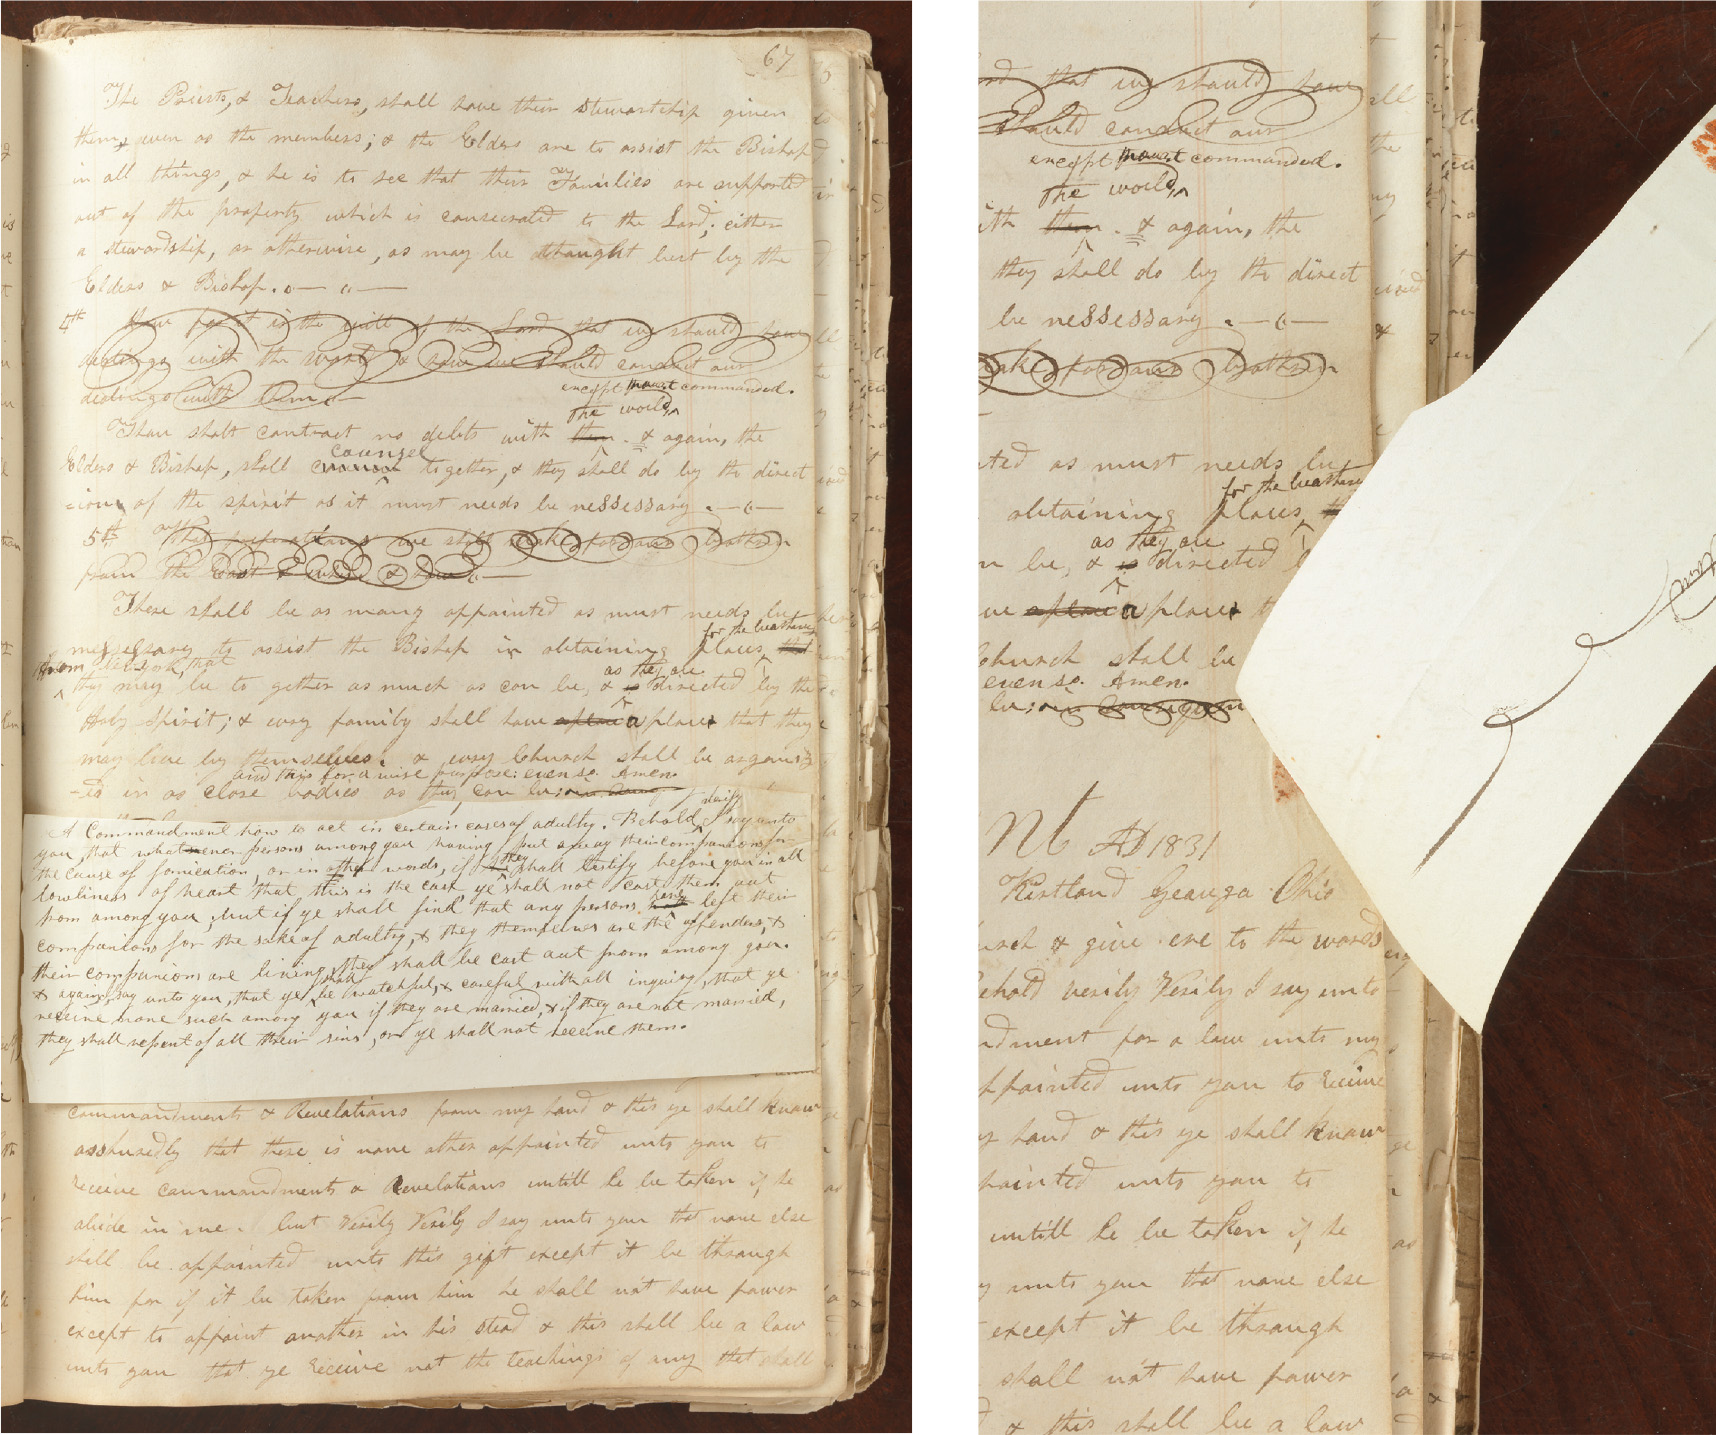 67
The Priests, & Teachers, shall have their Stewartship given
them even as the members; & the Elders are to assist the Bishop
in all things, & he is to see that their Families are supported
out of the property which is consecrated to the Lord; either
a stewardship, or otherwise, as may be thaught best by the
Elders & Bishop.
4th How far it is the will of the Lord that we should have
dealings with the world & how we should conduct our
dealings with them
except commanded.
the world
Thou shalt contract no debts with them. & again, the
counsel
Elders & Bishop, shall together, & they shall do by the direct
-ion of the spirit as it must needs be nessessary.
5th What preperations we shall make for our brethren
from the East & when & how
There shall be as many appointed as must needs be
for the breatheren
nessessary to assist the Bishop in obtaining places that
from New York, that
as they are
they may be to gether as much as can be, & is directed by the
Holy Spirit; & every family shall have a place that they
may live by themselves. & every Church shall be organiz
and this for a wise purpose; even so. Amen.
-ed in as close bodies as they can be;
A Commandment how to act in certain cases of adultry. Behold verily I say unto
you, that whatever persons among you having put away their companions for
the cause of fornication, or in other words, if they shall testify before you in all
lowliness of heart that this is the case ye shall not cast them out
from among you, but if ye shall find that any persons have left their
companions for the sake of adultry, & they themselves are the offenders, &
their companions are living they shall be cast out from among you.
& again, I say unto you, that ye shall be watchful, & careful with all inquiry, that ye
receive none such among you if they are married, & if they are not married,
they shall repent of all their sins, or ye shall not receive them.
commandments & Revelations from my hand & this ye shall know
asshuredly that there is none other appointed unto you to
receive commandments & Revelations untill he be taken if he
abide in me. but Verily Verily I say unto you that none else
shall be appointed unto this gift except it be through
him for if it be taken from him he shall not have power
except to appoint another in his stead & this shall be a law
unto you that ye receive not the teachings of any that shall
that we should have
should conduct our
except commanded.
the world
with them. & again, the
they shall do by the direct
be nessessary.
make for our brethren
as must needs be
for the breatheren
obtaining places
as they are
be, & is directed
a place
Church shall be
even so. Amen.
be;
AD 1831
Kirtland Geauga Ohio
& give ere to the words
behold verily Verily I say unto
for a law unto my
appointed unto you to receive
hand & this ye shall know
unto you to
untill he be taken if he
unto you that none else
except it be through
shall not have power
& this shall be a law